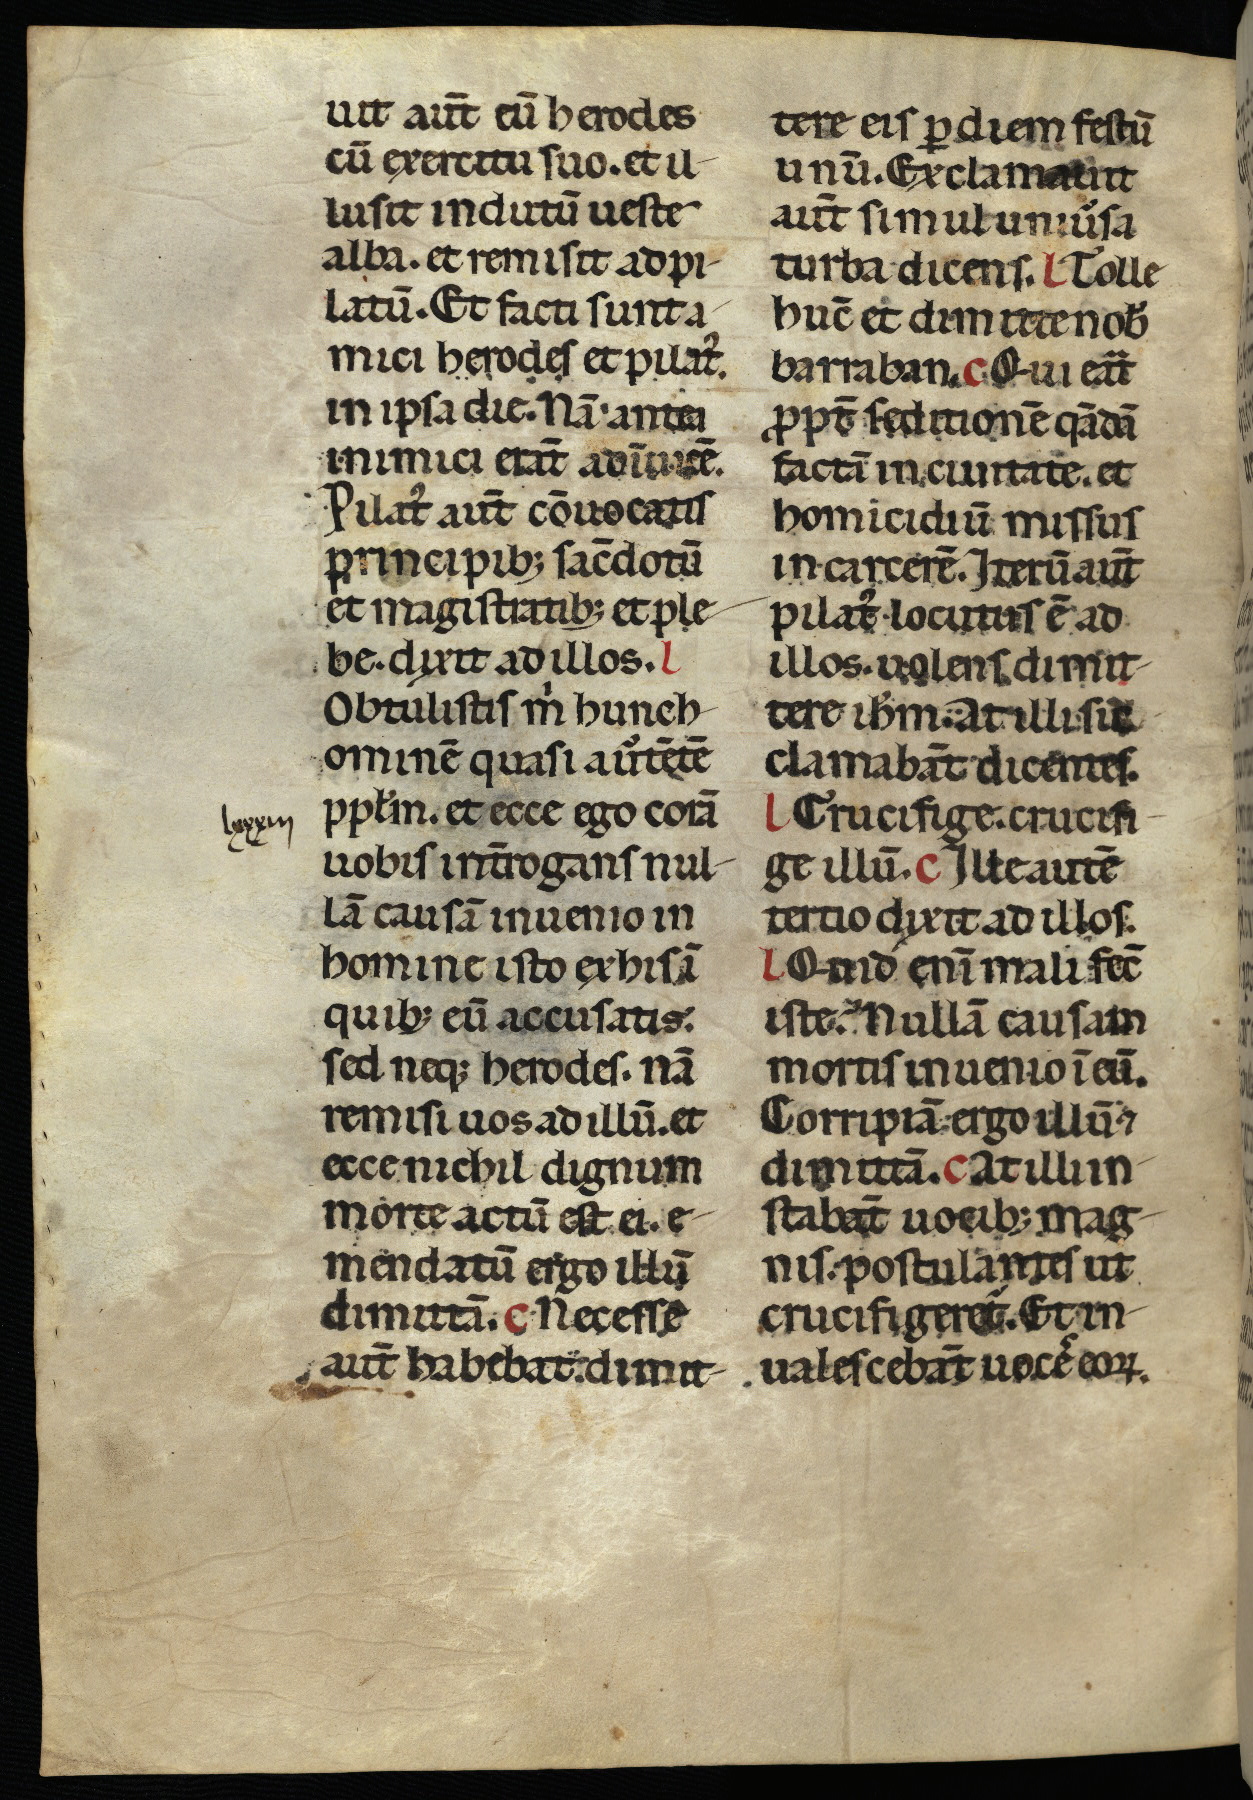 uit aut̄ eū herodes
cū exercitu suo. et il-
lusit indutū ueste
alba. et remisit ad pi-
latū. Et facti sunt a-
mici herodes et pilat᷒.
in ipsa die. Nā antea
inimici erāt adīuicē.
Pilat᷒ aut̄ cōuocatis
principib; sac̄dotū
et magistratib; et ple-
be. dixit ad illos. l
Obtulistis m̍ hunc h-
ominē quasi au͛tētē
pplm̄. et ecce ego corā
lxxxiii
uobis int̄rogans nul-
lā causā inuenio in
homine isto ex his ī
quib; eū accusatis.
sed neq; herodes. nā
remisi uos ad illū. et
ecce nichil dignum
morte actū est ei. e-
mendatū ergo illū
dimittā. c Necesse
aut̄ habebat. dimit-
tere eis ꝑ diem festū
unū. Exclamauit
aut̄ simul uniu͛sa
turba dicens. l Tolle
hūc et dimitte nob̄
barraban. c Qui eāt
ꝓpt̄ seditionē qādā
factā in ciuitate. et
homicidiū missus
in carcerē. Iterū aut̄
pilat᷒ locutus ē ad
illos. uolens dimit-
tere ih̄m. At illi suc-
clamabāt dicentes.
l Crucifige. crucifi-
ge illū. c Ille autē
tertio dixit ad illos.
l Quid enī mali fec̄
iste. Nullā causam
mortis inuenio ī eū.
Corripiā ergo illū ⁊
dimittā. c At illi in-
stabāt uocib; mag-
nis. postulantes ut
crucifigeret̄. Et in-
ualescebāt uoces eoꝝ.